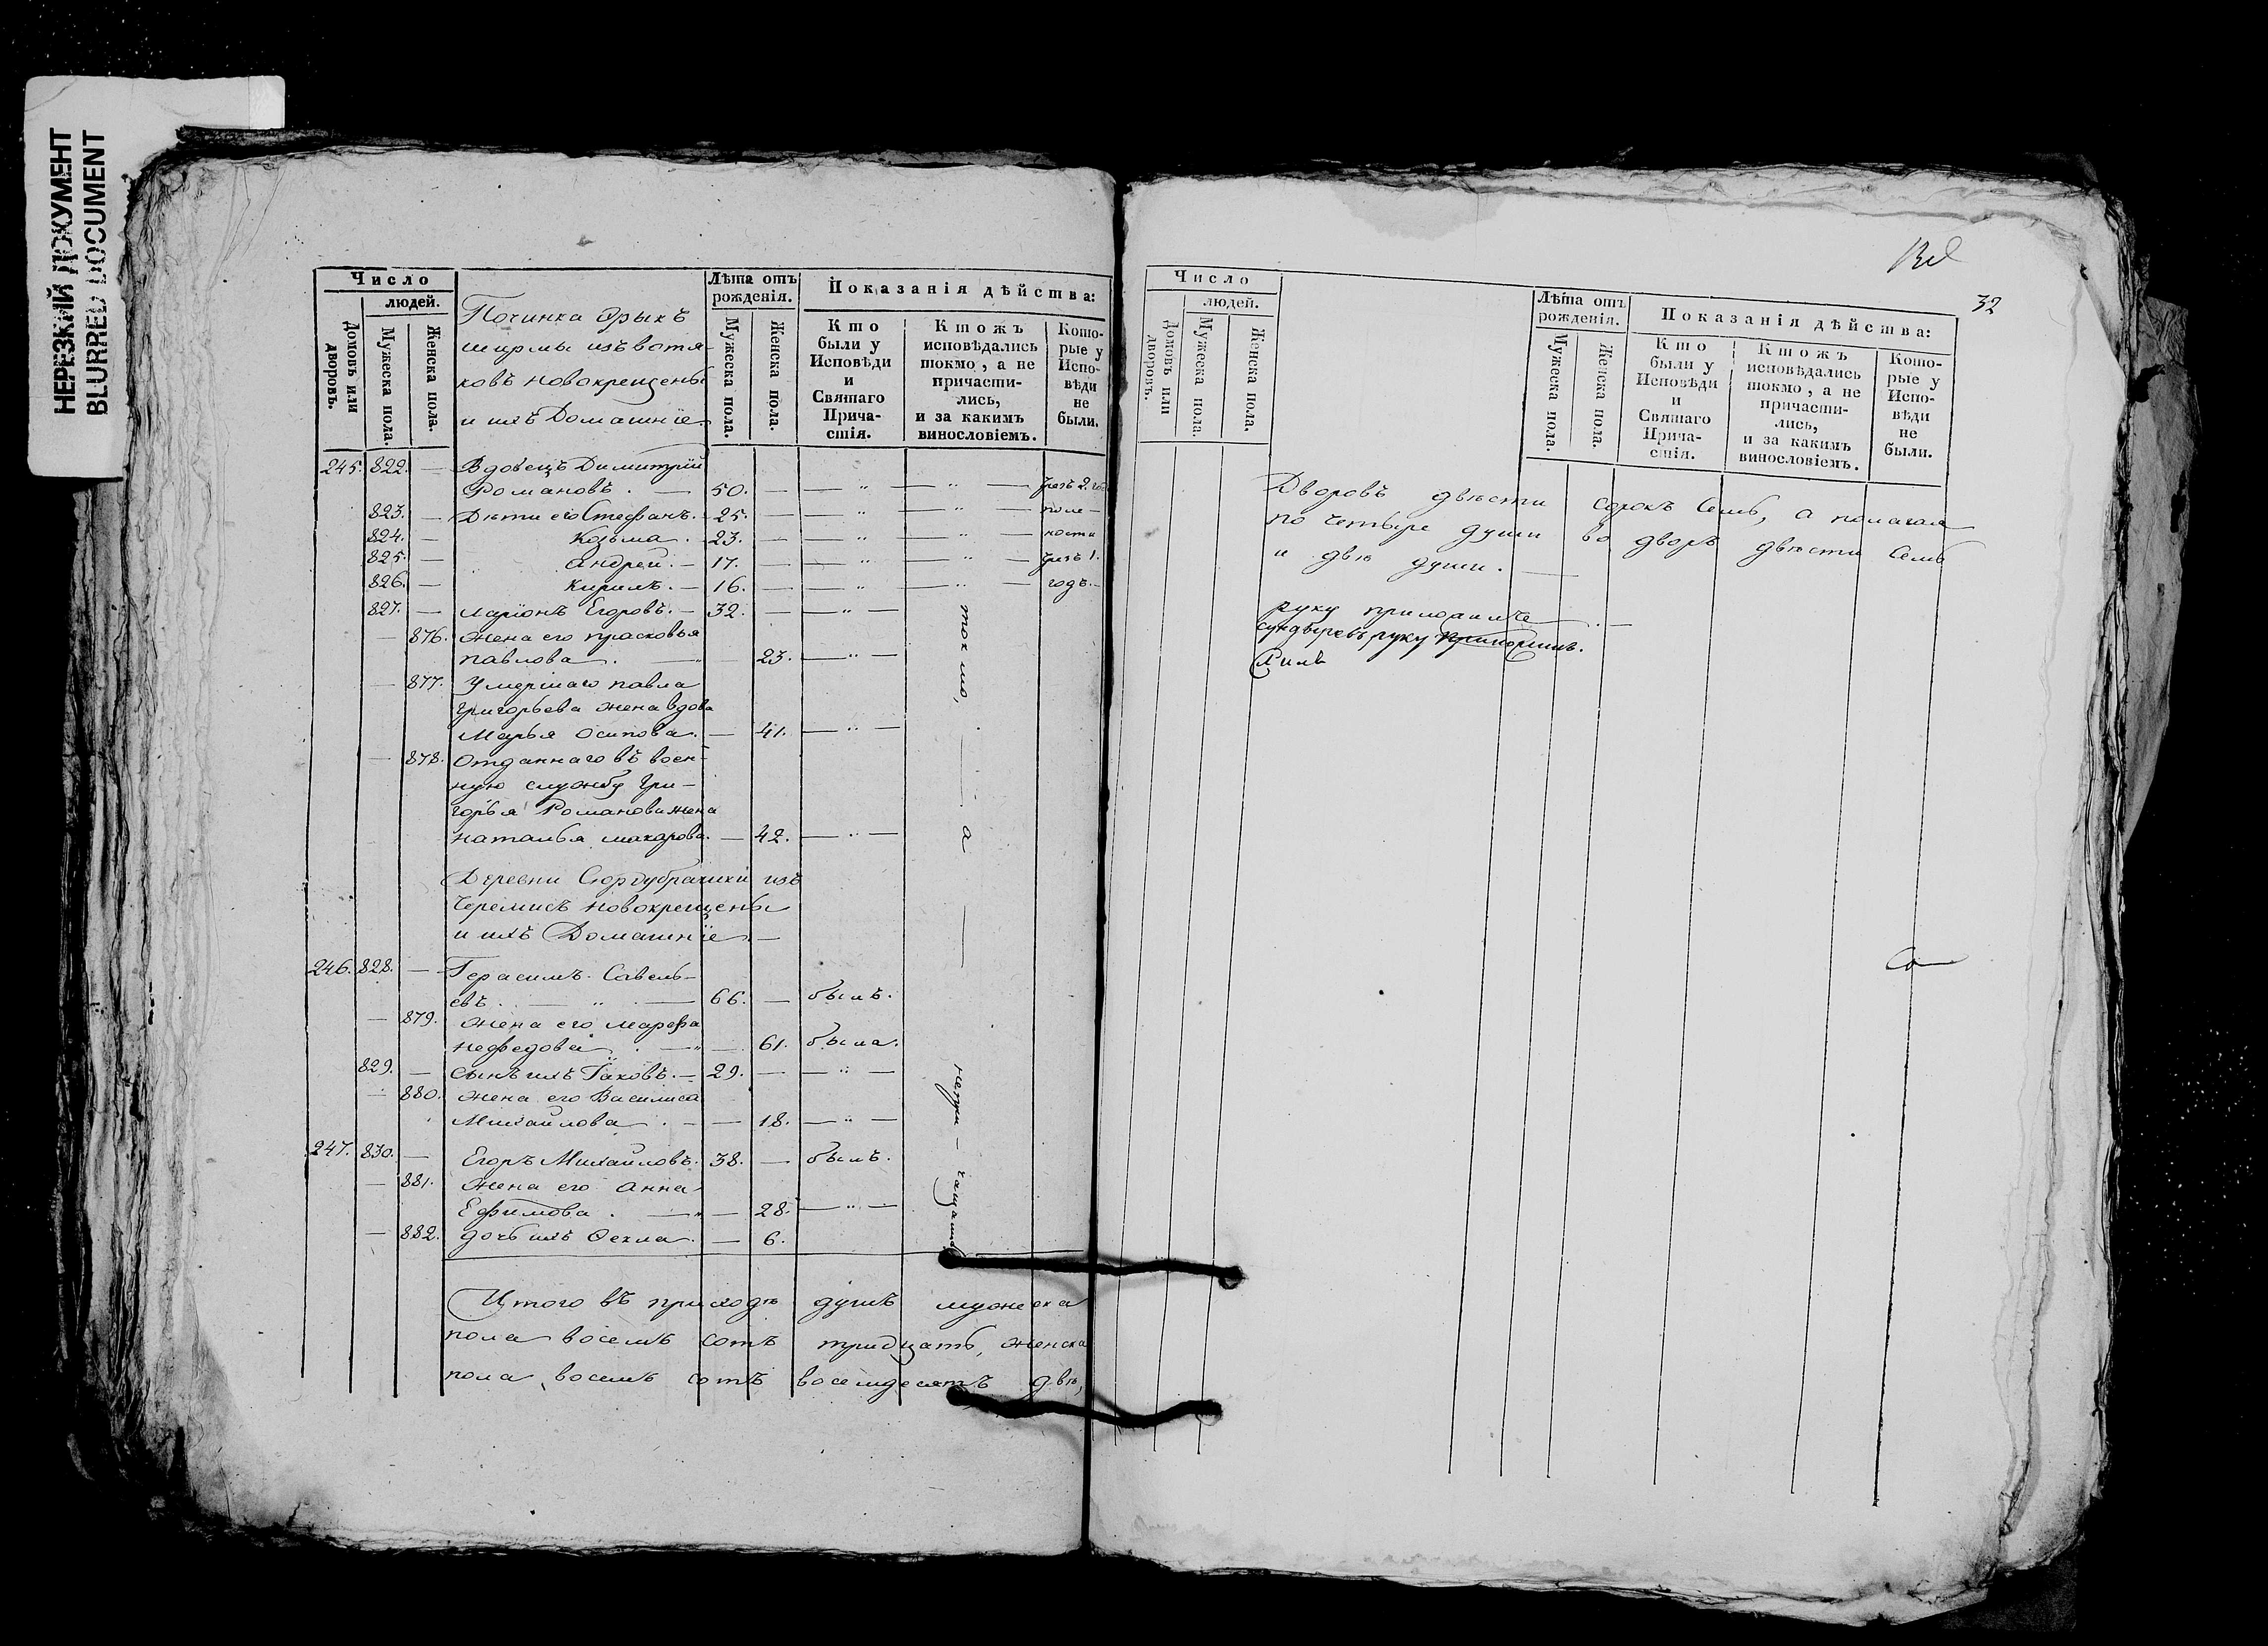 НЕРЕЗКИЙ ДОКУМЕНТ
BLURRED DOCUMENT
Число
людей.
Домовъ или дворовъ.
Мужеска пола.
Женска пола.
Починка Орыкъ
ширмы изъ вотя-
ковъ новокрещены
и ихъ Домашнїе.
Лѣта отъ рожденія.
Мужеска пола.
Женска пола.
Показанія дѣйства:
Кто были у Исповѣди и Святаго Прича-стія.
Ктожъ исповѣдались токмо, а не причасти-лись, и за какимъ винословіемъ.
Кото-рые у Испо-вѣди не были.
245. 822. — Вдовецъ Димитрїй
Романовъ. — 50. — — „ — „ — чрезъ 2. го
823. — Дѣти его Стефанъ. 25. — — „ — „ —
824. — Козьма. 23. — — „ — „ —
825. — Андрей. — 17. — — „ — „ — чрезъ 1.
826. — Кирилъ. — 16. — — „ — „ — годъ.
827. — Ларїонъ Егоровъ. — 32. — — „ —
— 876. Жена его прасковья
павлова. — 23. — „ —
— 877. Умершаго павла
Григорьева жена вдова
Марья Осипова. — 41. — „ —
— 878. Отданнаго въ воен-
ную службу Гри-
горья Романова жена
наталья макарова. — 42. — „ —
токмо, а
Деревни изъ
Черемисъ новокрещены
и ихъ Домашнїе —
246. 828. — Герасимъ Савель-
евъ. — „ — 66. — былъ.
— 879. Жена его марфа
нефедова. — 61. была.
829. — Сынъ ихъ Їаковъ. — 29. — — „ —
— 880. Жена его Василиса
Михайлова. — — 18. — „ —
247. 830. — Егоръ Михайловъ. 38. — былъ.
— 881. Жена его анна
Ефимова. — „ — 28. — „ —
— 882. дочь ихъ Фекла. — 6.
Итого въ приходѣ душъ мужеска
пола восемь сотъ тридцать, женска
пола восемь сотъ восемдесятъ двѣ,
32
Число
людей.
Домовъ или дворовъ.
Мужеска пола.
Женска пола.
Лѣта отъ рожденія.
Мужеска пола.
Женска пола.
Показанія дѣйства:
Кто были у Исповѣди и Святаго Прича-стія.
Ктожъ исповѣдались токмо, а не причасти-лись, и за какимъ винословіемъ.
Кото-рые у Испо-вѣди не были.
Дворовъ двѣсти сорокъ Семь, а полагая
по четыре души во дворъ двѣсти Семь
и двѣ души. —
руку
руку приложилъ.